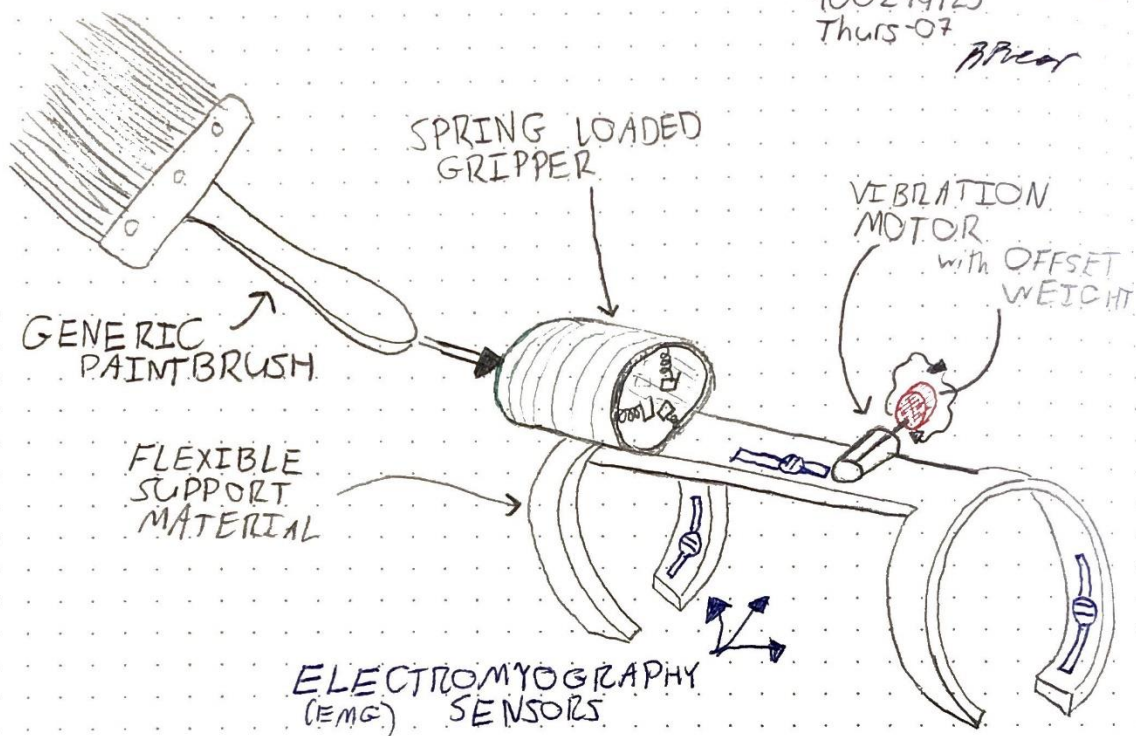 Thurs-07
SPRING LOADED
GRIPPER
VIBRATION
MOTOR
with OFFSET
WEIGHT
GENERIC
PAINTBRUSH
FLEXIBLE
SUPPORT
MATERIAL
ELECTROMYOGRAPHY
(EMG) SENSORS